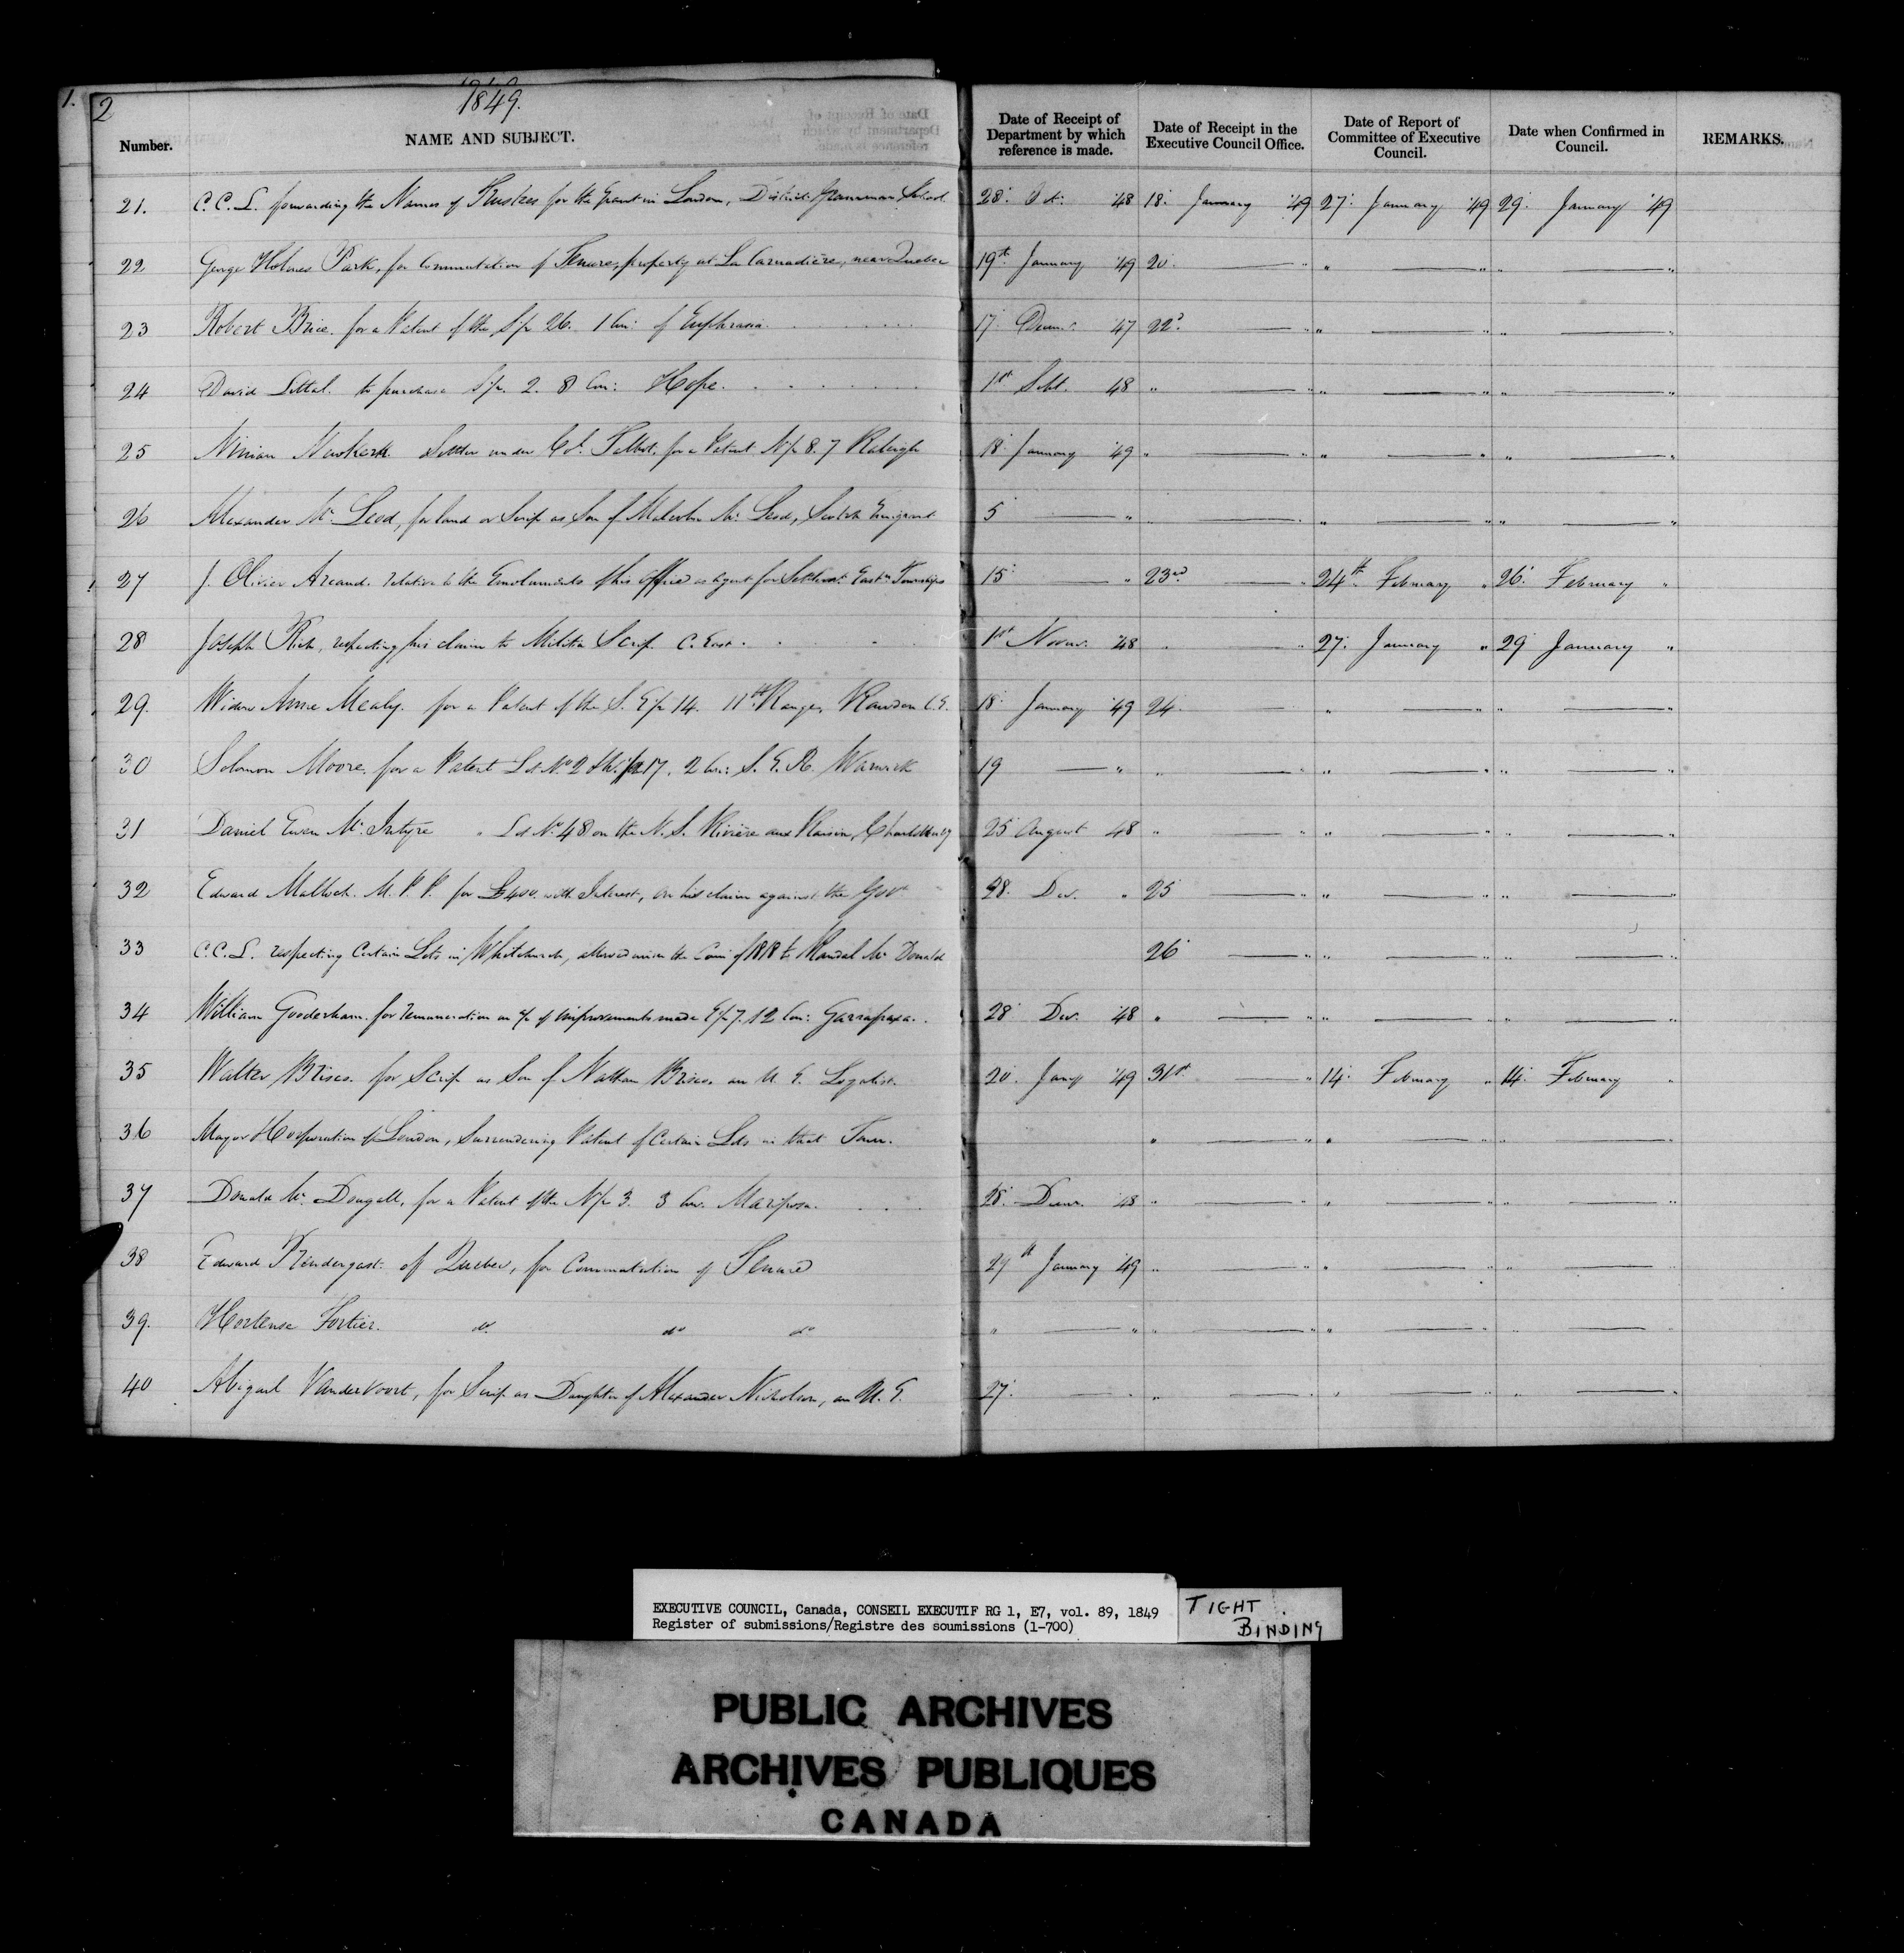 1.
2
1849.
Number.
NAME AND SUBJECT.
Date of Receipt of Department by which reference is made.
Date of Receipt in the Executive Council Office.
Date of Report of Committee of Executive Council.
Date when Confirmed in Council.
REMARKS.
21. C.C.L. forwarding the Names of Trustees for the Grant in London, District Grammar School 28: Oct: '48 18: January '49 27: January '49 29: January '49
22 George Holmes Park, for Commutation of Tenure, property at La Carnadière, near Quebec 19th January '49 20. " " " "
23 Robert Brice. for a Patent of the S½ 26. 1 Con: of Euphrasia 17: Decem. '47 22d " " " "
24 David Littal. to purchase S½. 2. 8 Con: Hope. 1st Sept. 48 " " " " " "
25 Ninian Newkerk Settler under Col. Talbot. for a Patent N½ 8. 7 Raleigh 18: January '49 " " " " " "
26 Alexander Mc Leod, for land or Scrip as Son of Malcolm Mc Leod, Scotch Emigrant 5 " " " " " " "
27 J. Olivier Arcand. relative to the Emoluments of his Office as agent for Settlemt. Eastn. Townships 15: " 23rd " 24th February " 26: February "
28 Joseph Rich, respecting his claim to Militia Scrip C. East. 1st Novem. '48 " " 27: January " 29 January "
29. Widow Anne Mealy. for a Patent of the S. E½ 14. 11th Range, Rawdon C.E. 18: January '49 24. " " " "
30 Solomon Moore. for a Patent Lot No 2 17. 2 Con: S. E. R. Warwick 19 " " " " " " "
31 Daniel Ewen Mc Intyre " Lot No 48 on the N. S. Rivière aux Raisin, Charlottenbg 25 August 48 " " " " " "
32 Edward Malloch. M. P. P. for £400. with Interest, on his claim against the Govt. 28. Dec. " 25 " " " "
33 C.C.L. respecting Certain Lots in Whitchurch, allowed in the Com of 1818 to Randal Mc Donald 26 " " " " "
34 William Gooderham. for remuneration on a/c of improvements made E½ 7. 12 Con: Garrafraxa. 28 Dec. '48 " " " " " "
35 Walter Brisco. for Scrip as Son of Nathan Brisco. an U. E. Loyalist. 20. Jany '49 31st " 14: February " 14: February "
36 Mayor & Corporation of London, Surrendering Patent of Certain Lots in that Town. " " " " "
37 Donald Mc Dougall, for a Patent of the N½ 3. 3 Con. Mariposa. 28. Decem. 48 " " " " " "
38 Edward Prendergast. of Quebec, for Commutation of Tenure 29th January '49 " " " " " "
39. Hortense Fortier. do. do do " " " " " " " "
40 Abigail Vandervoort, for Scrip as Daughter of Alexander Nicholson, an U. E. 27. " " " " " " "
EXECUTIVE COUNCIL, Canada, CONSEIL EXECUTIF RG 1, E7, vol. 89, 1849
Register of submissions/Registre des soumissions (1-700)
TIGHT
BINDING
PUBLIC ARCHIVES
ARCHIVES PUBLIQUES
CANADA